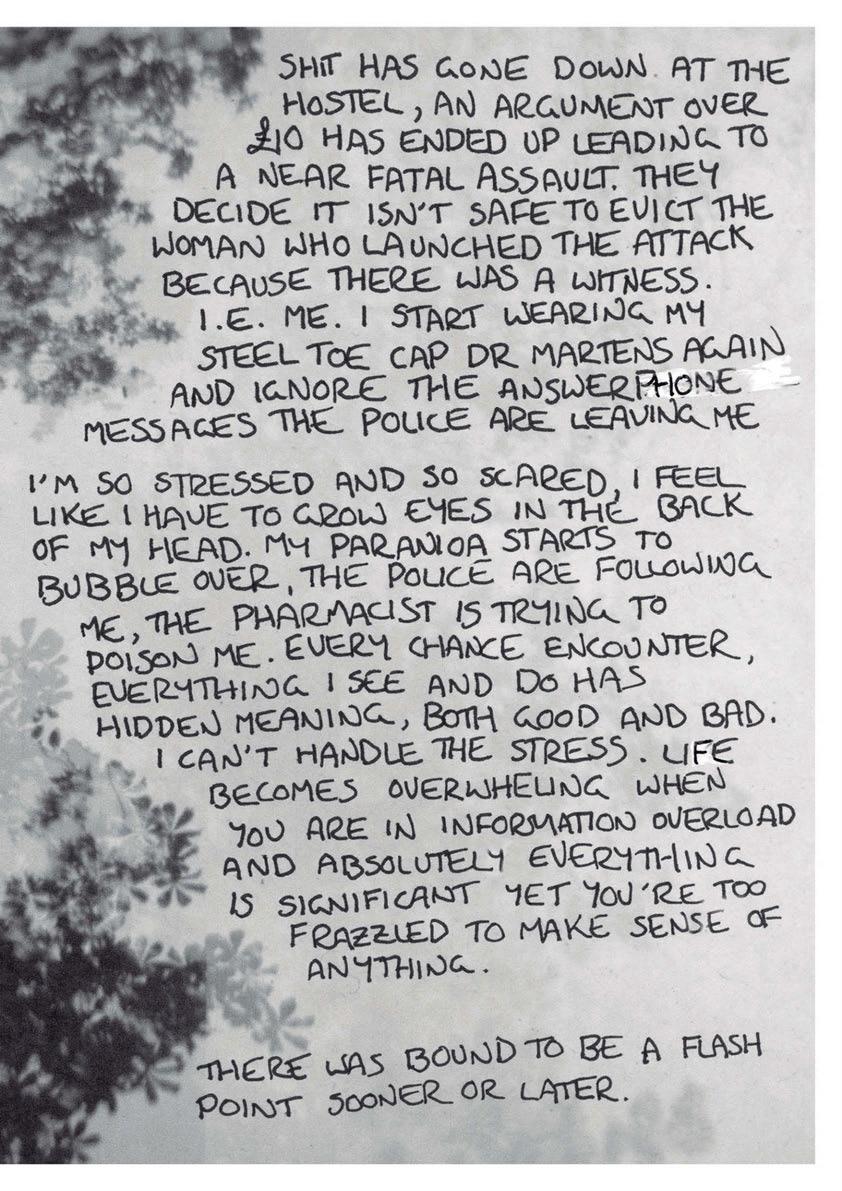 SHIT HAS GONE DOWN AT THE
HOSTEL, AN ARGUMENT OVER
£10 HAS ENDED UP LEADING TO
A NEAR FATAL ASSAULT. THEY
DECIDE IT ISN'T SAFE TO EVICT THE
WOMAN WHO LAUNCHED THE ATTACK
BECAUSE THERE WAS A WITNESS.
I.E. ME. I START WEARING MY
STEEL TOE CAP DR MARTENS AGAIN
AND IGNORE THE ANSWERPHONE
MESSAGES THE POLICE ARE LEAVING ME
I'M SO STRESSED AND SO SCARED, I FEEL
LIKE I HAVE TO GROW EYES IN THE BACK
OF MY HEAD. MY PARANIOA STARTS TO
BUBBLE OVER, THE POLICE ARE FOLLOWING
ME, THE PHARMACIST IS TRYING TO
POISON ME. EVERY CHANCE ENCOUNTER,
EVERYTHING I SEE AND DO HAS
HIDDEN MEANING, BOTH GOOD AND BAD.
I CAN'T HANDLE THE STRESS. LIFE
BECOMES OVERWHELING WHEN
YOU ARE IN INFORMATION OVERLOAD
AND ABSOLUTELY EVERYTHING
IS SIGNIFICANT YET YOU'RE TOO
FRAZZLED TO MAKE SENSE OF
ANYTHING.
THERE WAS BOUND TO BE A FLASH
POINT SOONER OR LATER.